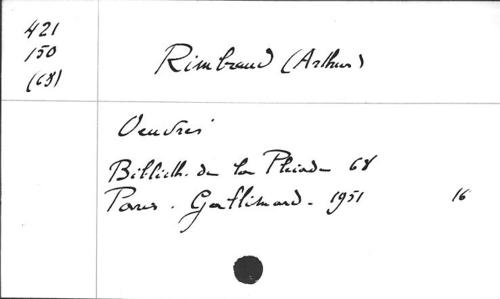 421
150
(68)
Rimbaud (Arthur)
Oeuvres
Biblioth. de la Pléiade 68
Paris. Gallimard. 1951 16